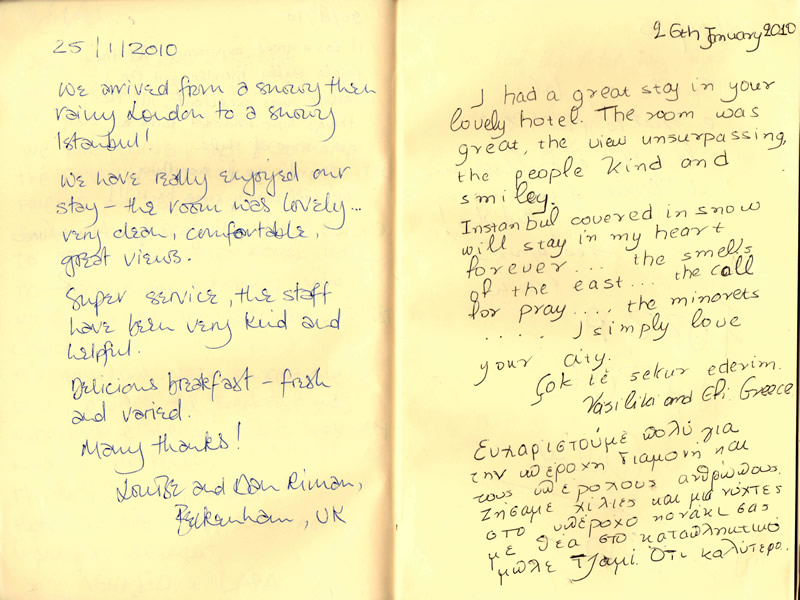 25/1/2010
We arrived from a snowy then
rainy London to a snowy
Istanbul!
We have really enjoyed our
stay – the room was lovely...
very clean, comfortable,
great views.
Super service, the staff
have been very kind and
helpful.
Delicious breakfast – fresh
and varied.
Many thanks!
Louise and Dan Riman,
Beckenham, UK
26th January 2010
I had a great stay in your
lovely hotel. The room was
great, the view unsurpassing,
the people kind and
smiley.
Instanbul covered in snow
will stay in my heart
forever... the smells
of the east... the call
for pray.... the minorets
..... I simply love
your city.
Çok te sekur ederim.
Vasiliki and Efi Greece
Ευχαριστούμε πολύ για
την υπέροχη διαμονή και
τους υπέροχους ανθρώπους.
Ζήσαμε χίλιες και μια νύχτες
στο υπέροχο κονάκι σας
με θέα στο καταπληκτικό
μπλε τζαμί. Ότι καλύτερο.